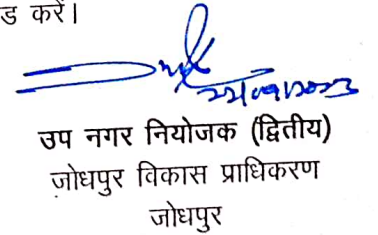 ड करें।
उप नगर नियोजक (द्वितीय)
जोधपुर विकास प्राधिकरण
जोधपुर